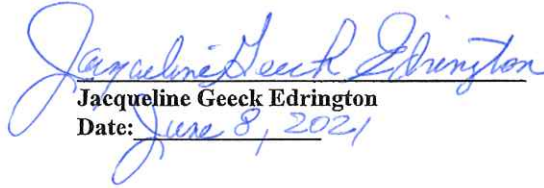 Jacqueline Geeck Edrington
Jacqueline Geeck Edrington
Date: June 8, 2021